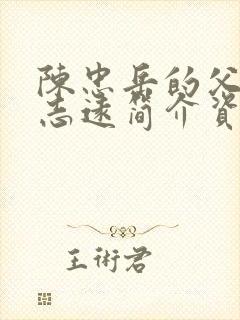 陳忠岳的父
志遠簡介資
王術君